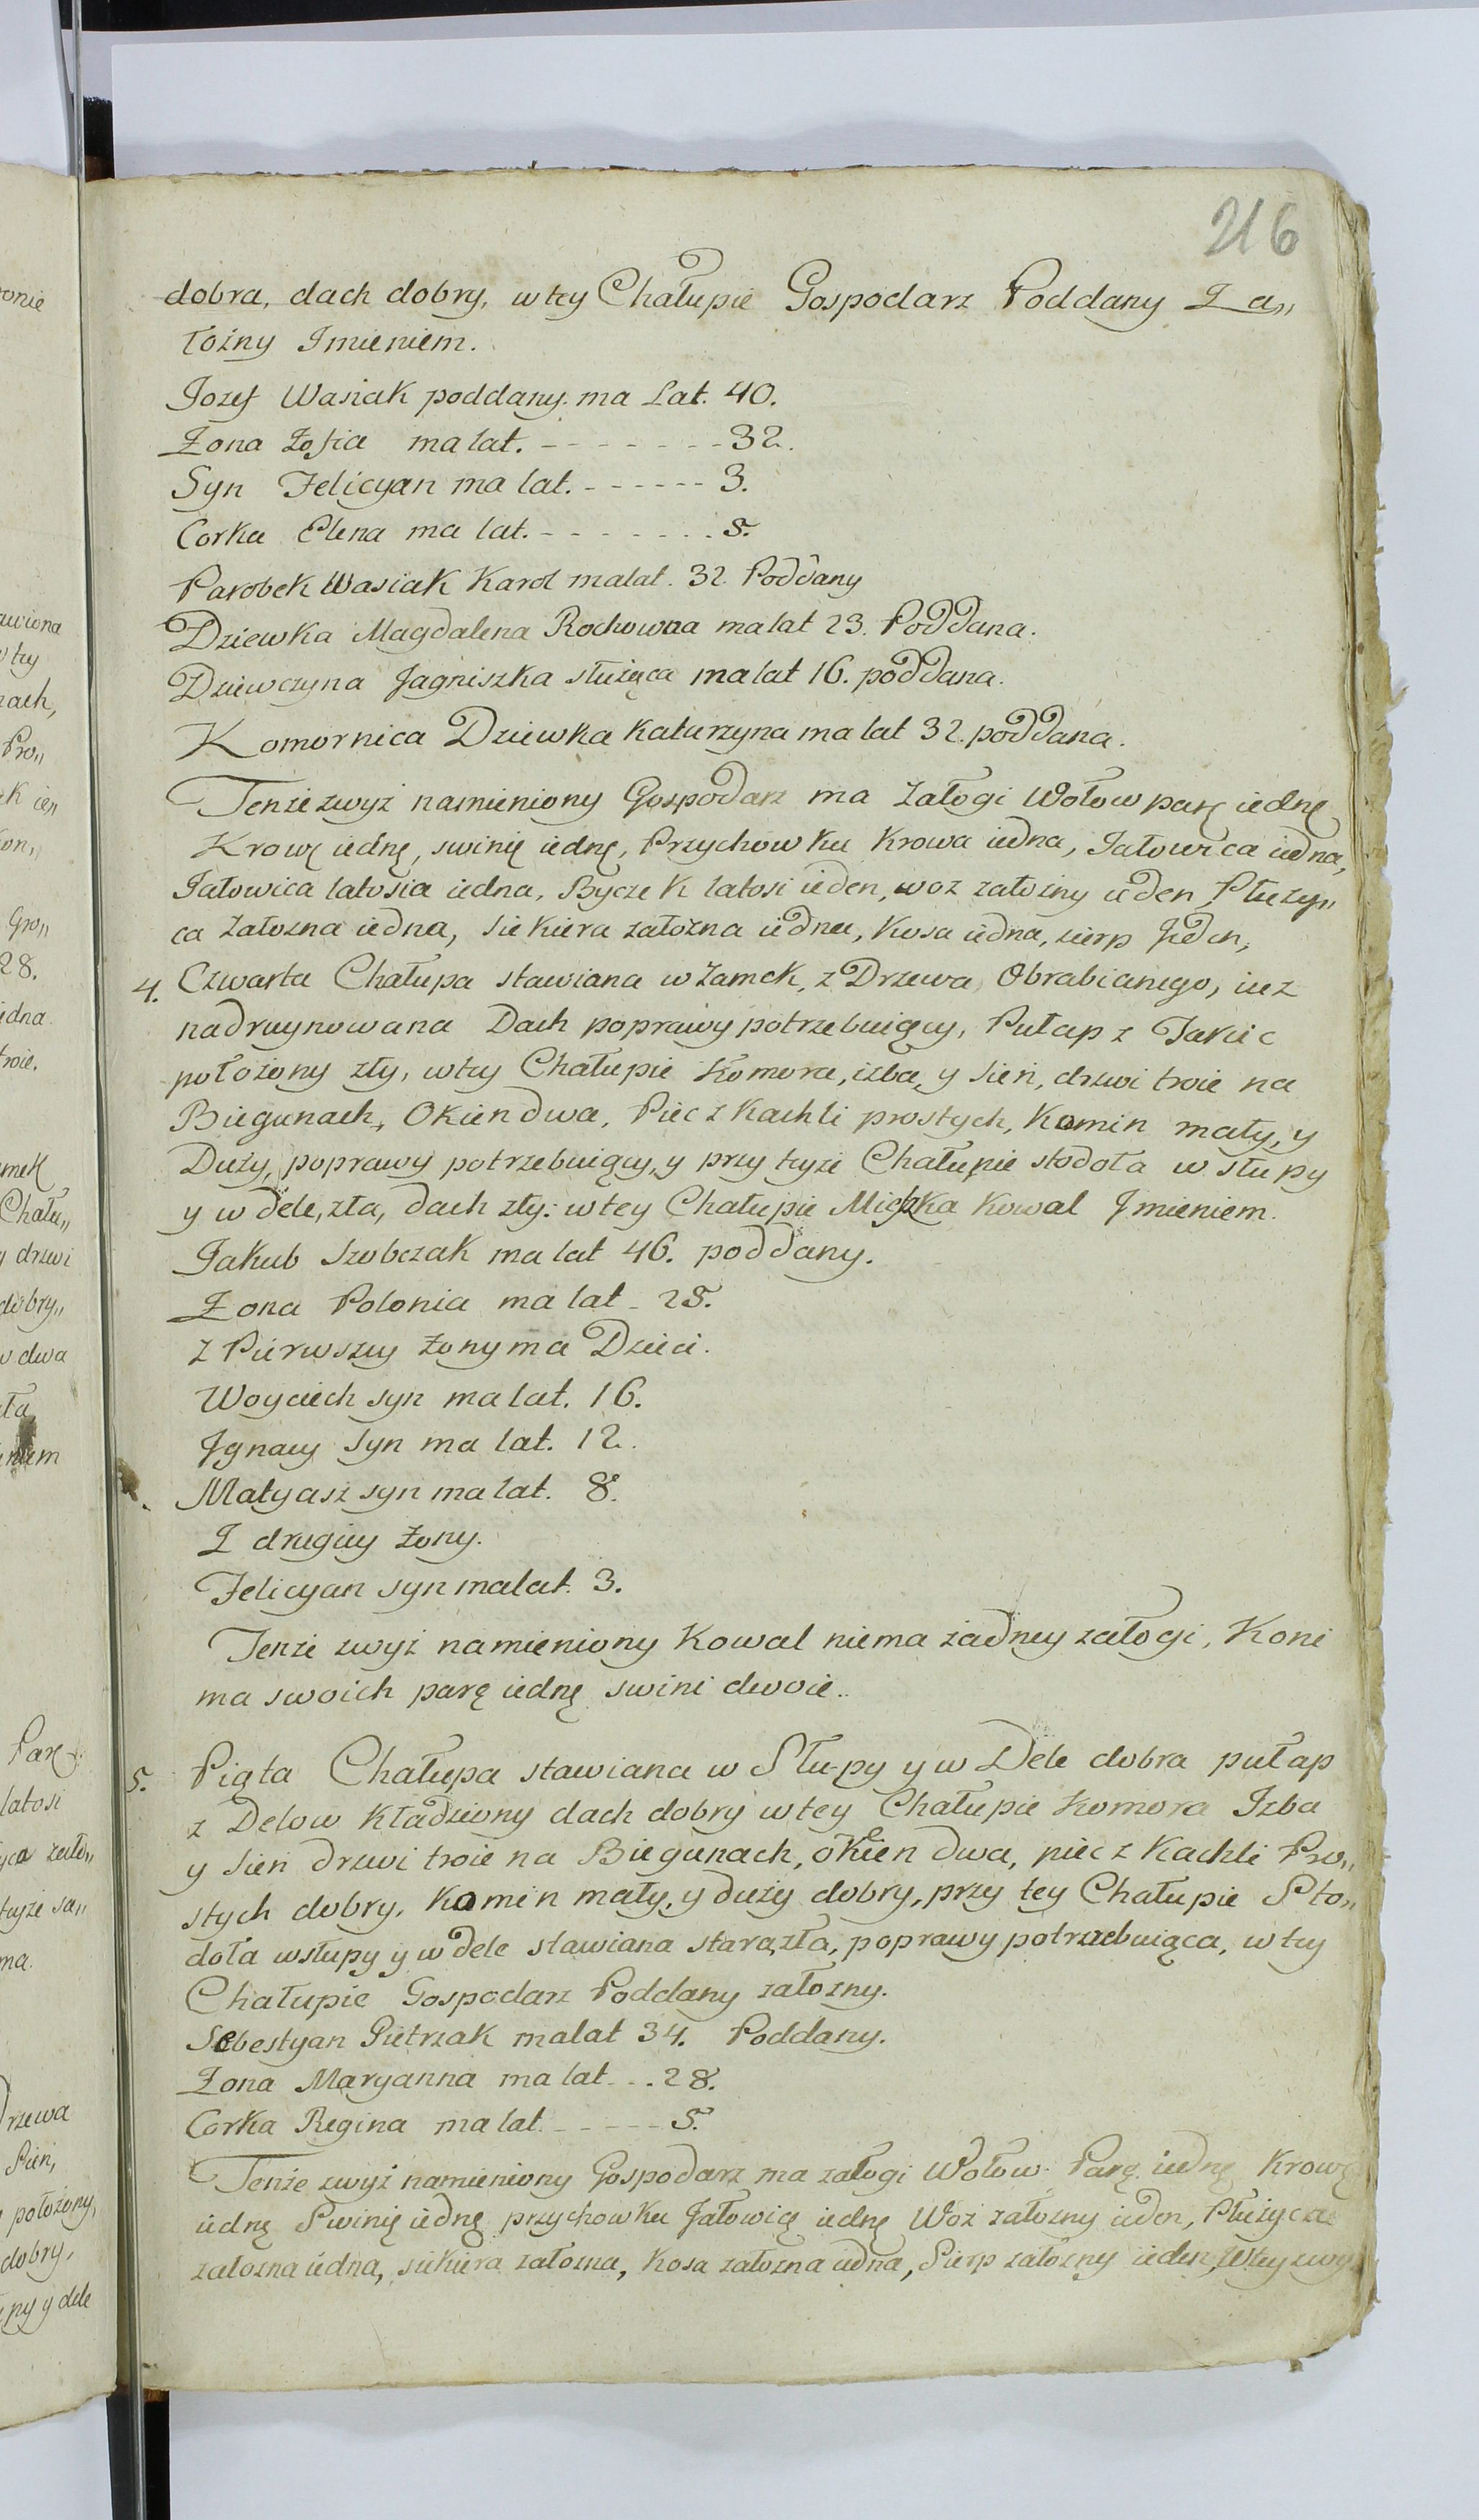 216
dobra, dach dobry, w tey Chałupie Gospodarz Poddany Za„
łożny Imieniem.
Jozef Wasiak poddany ma Lat. 40.
Zona Zofia ma lat. - - - - - - - 32.
Syn Felicyan ma lat. - - - - - - 3.
Corka Elena ma lat. - - - - - - - 5.
Parobek Wasiak Karol ma lat. 32. Poddany
Dziewka Magdalena Rochowna ma lat 23. Poddana.
Dziewczyna Jagniszka służąca ma lat 16. poddana.
Komornica Dziewka Katarzyna ma lat 32. poddana.
Tenże zwyż namieniony Gospodarz ma Załogi Wołow parę iednę
Krowę iednę, swinię iednę, Przychowku Krowa iedna, Jałowica iedna,
Jałowica latosia iedna, Byczek latosi ieden, woz założny ieden, Płuży„
ca Załozna iedna, siekiera załozna iedna, Kosa iedna, sierp Jeden,
4. Czwarta Chałupa stawiana w Zamek, z Drzewa Obrabianego, iuz
nadruynowana Dach poprawy potrzebuiący, Pułap z Tarcic
położony zły, w tey Chałupie Komora, izba, y Sień, drzwi troie na
Biegunach, Okien dwa, Piec z Kachli prostych, Komin mały, y
Duży, poprawy potrzebuiący, y przy teyże Chałupie stodoła w słupy
y w dele, zła, dach zły: w tey Chałupie Mieszka Kowal Jmieniem.
Jakub Szobczak ma lat 46. poddany.
Zona Polonia ma lat - 25.
Z Pierwszey Żony ma Dzieci.
Woyciech syn ma lat. 16.
Jgnacy Syn ma lat. 12.
Matyasz syn ma lat. 8.
Z drugiey Żony.
Felicyan syn ma lat. 3.
Tenże zwyż namieniony Kowal niema żadney załogi, Koni
ma swoich parę iednę swini dwoie..
5. Piąta Chałupa stawiana w Słupy y w Dele dobra pułap
z Delow Kładziony dach dobry w tey Chałupie Komora Izba
y Sień drzwi troie na Biegunach, okien dwa, piec z Kachli Pro„
stych dobry, Komin mały, y duży dobry, przy tey Chałupie Sto„
doła w słupy y w dele stawiana stara, zła, poprawy potrzebuiąca, w tey
Chałupie Gospodarz Poddany załozny.
Sebestyan Pietrzak ma lat 34. Poddany.
Zona Maryanna ma lat - - - 28.
Corka Regina ma lat. - - - - - 5.
Tenże zwyż namieniony Gospodarz ma załogi Wołow Parę iednę Krowę
iednę Swinię iednę przychowku Jałowicę iednę Woz załozny ieden, Płużyca
załozna iedna, siekiera załozna, Kosa załozna iedna, Sierp załozny ieden, W tey zwyż